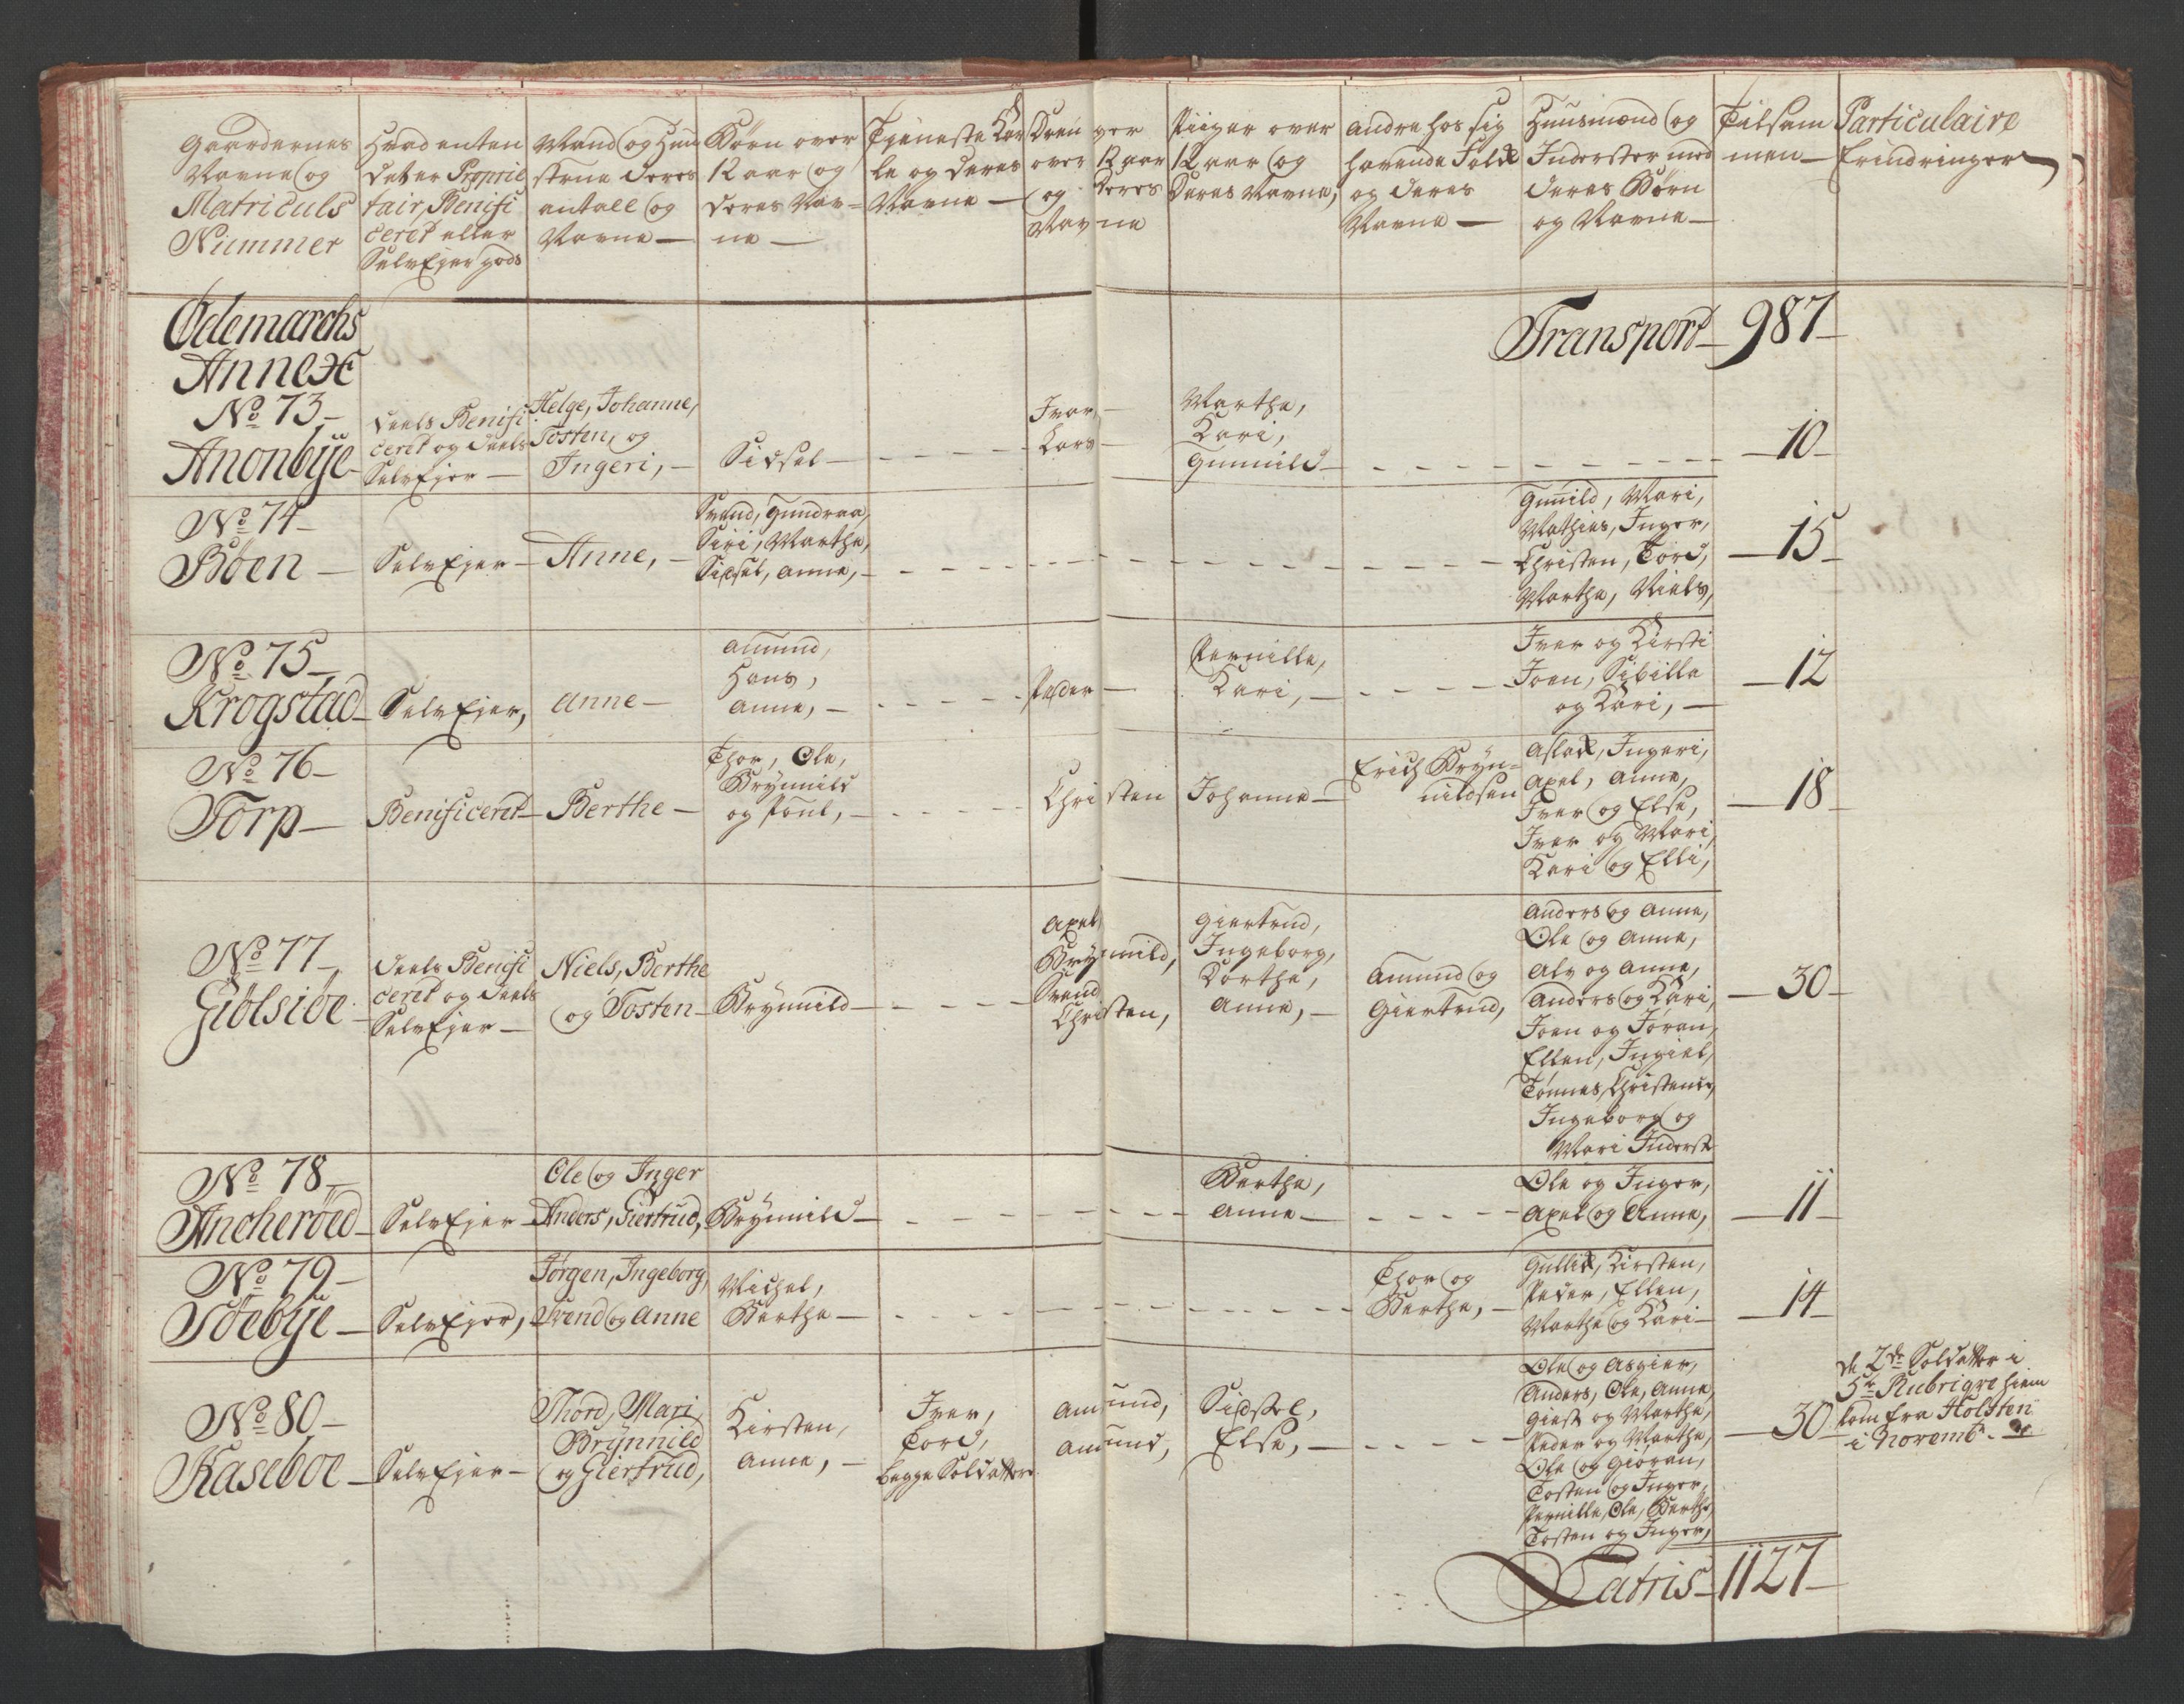 Gaardernes
Navne og
Matriculs
Nummer
Hvad enten
det er Proprie
tair, Benifi
ceret eller
SelvEjer gods
Mand og Huu
strue deres
antall og
Navne —
Børn over
12 aar og
deres Nav=
ne —
Tjeneste Kar
le og deres
Navne —
Drenger
over 12 aar
og deres
Navne
Piiger over
12 aar og
deres Navne,
andre hos sig
havende Folck
og deres
Navne —
Huusmænd og
Inderster med
deres Børn
og Navne —
Tilsam
men —
Particulaire
Erindringer
Ødemarchs
Annex
Transport — 987 —
No 73 —
Anonbÿe
deels Benifi
ceret og deels
SelvEjer —
Helge, Johanne,
Tosten, og
Ingeri, —
Sidsel —
Ivar,
Lars
Marthe,
Kari,
Gunnild —
10 —
No 74 —
Bøen —
SelvEjer —
Anne, —
Svend, Gundraa,
Siri, Marthe,
Sidsel, Anne, —
Gunild, Mari,
Mathias, Inger,
Christen, Tord,
Marthe, Niels,
15 —
No 75,
Krogstad —
SelvEjer,
Anne —
Amund,
Hans,
Anne, —
Peder —
Pernille,
Kari, —
Iver og Kirsti
Joen, Sibille
og Kari, —
12
No 76 —
Torp —
Benificeret —
Berthe —
Thor, Ole,
Brynnild
og Poul, —
Christen
Johanne —
Erich Bryn=
nildsen
Aslack, Ingeri,
Axel, Anne,
Iver og Else,
Iver og Mari,
Kari og Elli,
18 —
No 77 —,
Giølsiøe —
deels Benifi
ceret og deels
SelvEjer —
Niels, Berthe
og Tosten —
Brynnild —
Axel,
Brynnild,
Svend
Christen,
Giertrud,
Ingeborg,
Dorthe,
Anne, —
Amund og
Giertrud,
Anders og Anne,
Ole og Anne,
Alv og Anne,
Anders og Kari,
Joen og Joran,
Ellen, Ingiel,
Tønnes, Christence,
Ingeborg og
Mari Inderst
30 —
No 78 —
Ancherøed —
SelvEjer —
Ole og Inger
Anders, Giertrud,
Brynnild —
Berthe,
Anne —
Ole og Inger,
Axel og Anne,
11 —
No 79 —
Søebÿe —
SelvEjer,
Jørgen, Ingeborg,
Svend og Anne
Michel,
Berthe —
Thor og
Berthe, —
Gullick, Kirsten,
Peder, Ellen,
Marthe og Kari —
14 —
No 80 —
Kaseboe —
SelvEjer —
Thord, Mari,
Brÿnnild
og Giertrud,
Kirsten,
Anne, —
Iver,
Tord,
begge Soldatter
Amund,
Amund,
Sidssel,
Else, —
Ole og Asgier,
Anders, Ole, Anne,
Giest og Marthe,
Peder og Marthe,
Ole og Giøran,
Tosten og Inger,
Pernille, Ole, Berthe,
Tosten og Inger,
30
de 2de Soldatter i
5te Rubriqve hiem
kom fra Holsten
i Novembr.
Latris — 1127 —